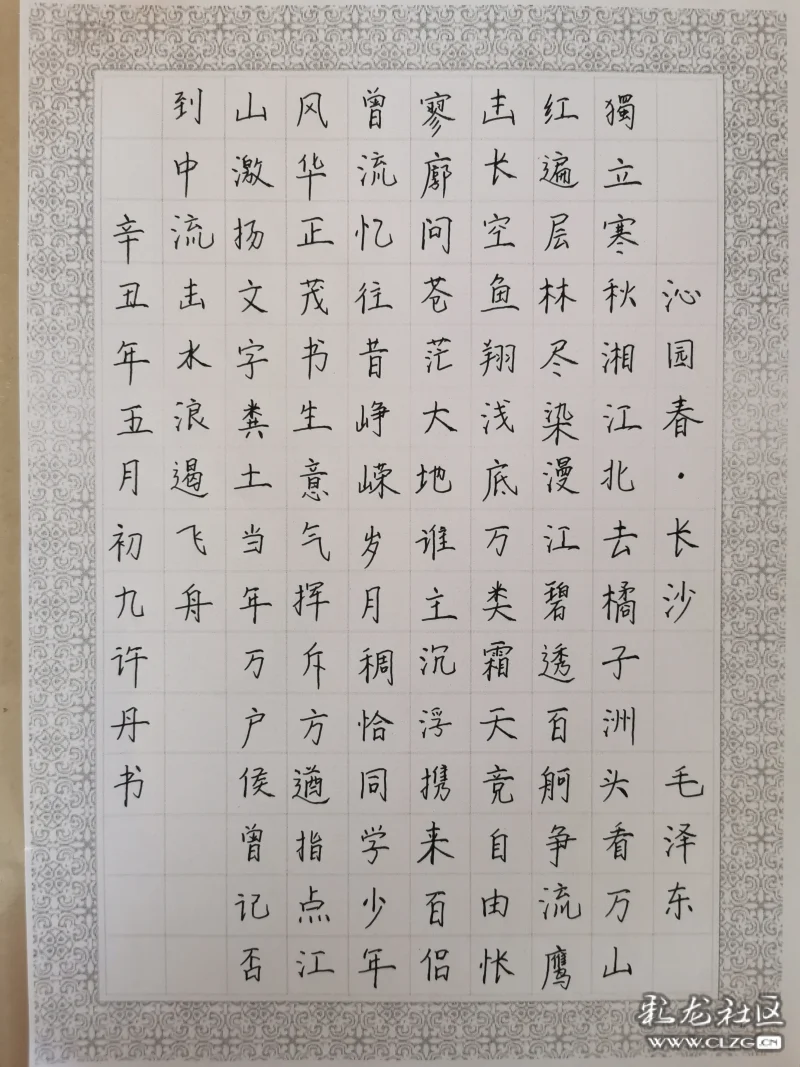 沁园春·长沙 毛泽东
獨立寒秋湘江北去橘子洲头看万山
红遍层林尽染漫江碧透百舸争流鹰
击长空鱼翔浅底万类霜天竞自由怅
寥廓问苍茫大地谁主沉浮携来百侣
曾流忆往昔峥嵘岁月稠恰同学少年
风华正茂书生意气挥斥方遒指点江
山激扬文字粪土当年万户侯曾记否
到中流击水浪遏飞舟
辛丑年五月初九许丹书
彩龙社区
WWW.CLZG.CN